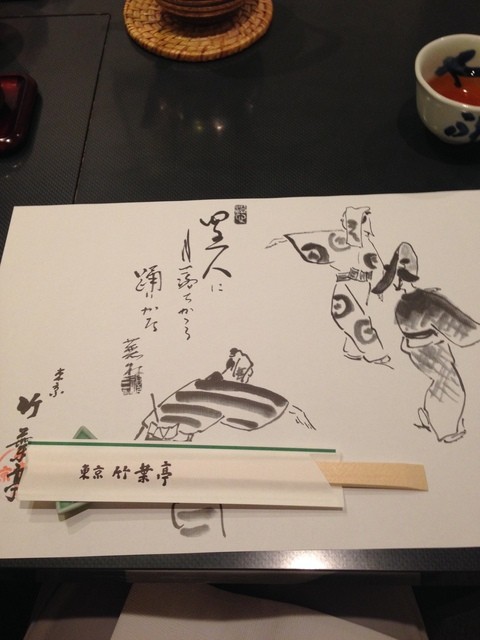 四五人に
月落ちかゝる
踊かな
蕪村
東京
竹葉亭
東京 竹葉亭